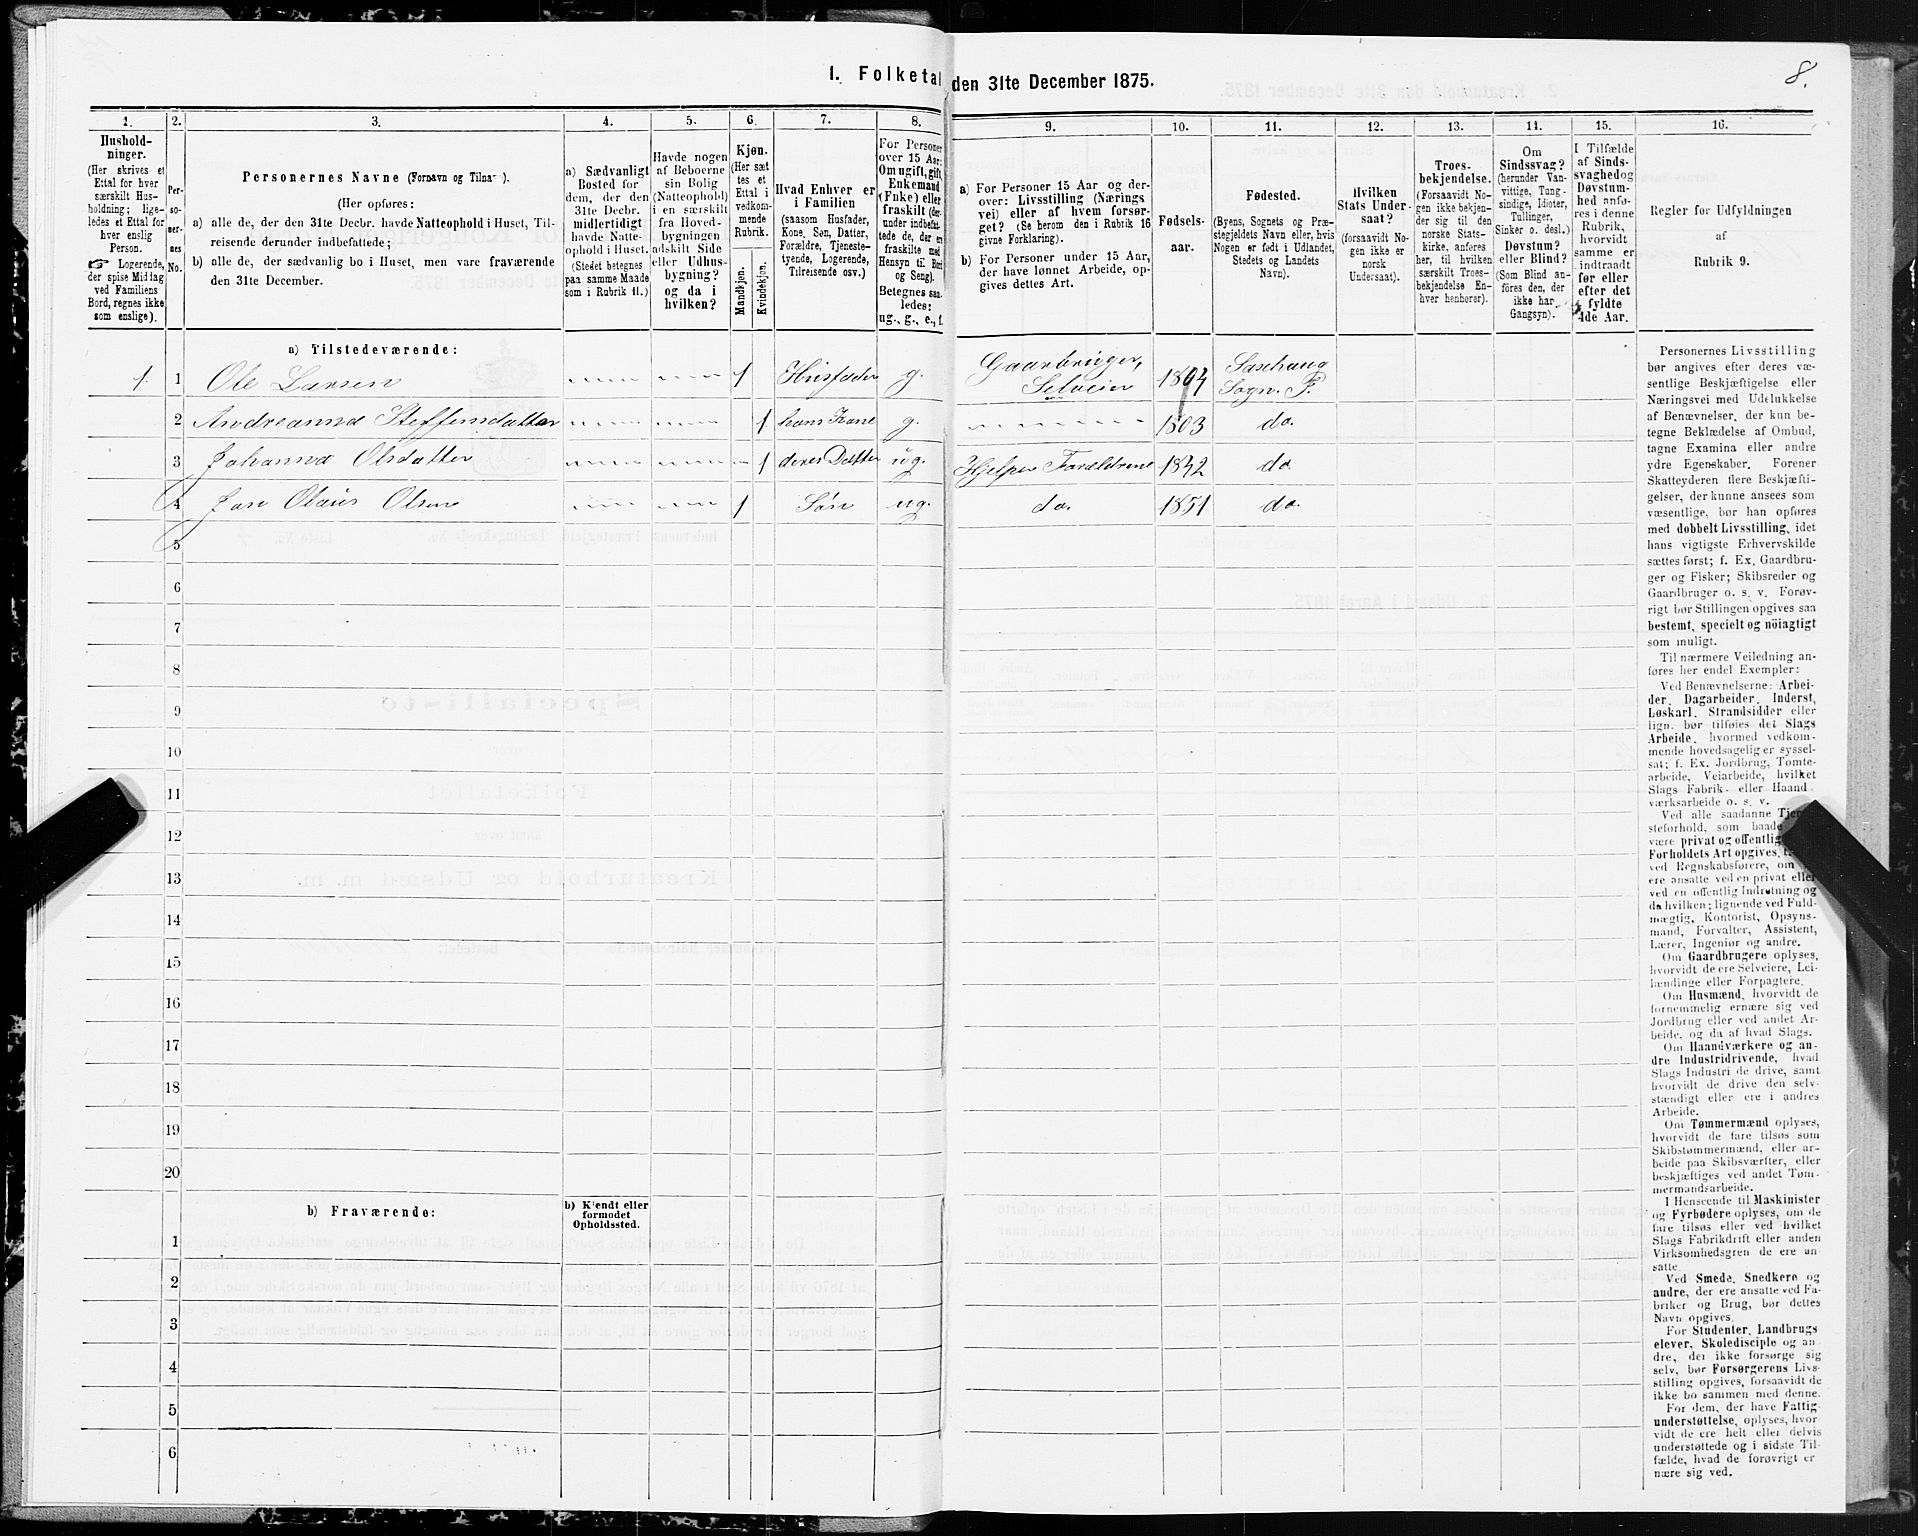 8.
1. Folketal den 31te December 1875.
1. 2. 3. 4. 5. 6. 7. 8. 9. 10. 11. 12. 13. 14. 15. 16.
Hushold-
ninger.
(Her skrives et
Ettal for hver
særskilt Hus-
holdning; lige-
ledes et Ettal for
hver enslig
Person.
☞ Logerende,
der spise Middag
ved Familiens
Bord, regnes ikke
som enslige).
Per-
so-
ner-
nes
No.
Personernes Navne (Fornavn og Tilnavn).
(Her opføres:
a) alle de, der den 31te Decbr. havde Natteophold i Huset, Til-
reisende derunder indbefattede;
b) alle de, der sædvanlig bo i Huset, men vare fraværende
den 31te December.
a) Sædvanligt
Bosted for
dem, der den
31te Decbr.
midlertidigt
havde Natte-
ophold i Huset.
(Stedet betegnes
paa samme Maade
som i Rubrik 11.)
Havde nogen
af Beboerne
sin Bolig
(Natteophold)
i en særskilt
fra Hoved-
bygningen
adskilt Side
eller Udhus-
bygning?
og da i
hvilken?
Kjøn.
(Her sæt
tes et
Ettal i
vedkom-
mende
Rubrik.
Mandkjøn.
Kvindekjøn.
Hvad Enhver er
i Familien
(saasom Husfader,
Kone, Søn, Datter,
Forældre, Tjeneste-
tyende, Logerende,
Tilreisende osv.)
For Personer
over 15 Aar:
Om ugift, gift,
Enkemand
(Enke) eller
fraskilt (der-
under indbefat-
tede de, der er
fraskilte med
Hensyn til Bord
og Seng).
Betegnes saa-
ledes:
ug., g., e., f.
a) For Personer 15 Aar og der-
over: Livsstilling (Nærings
vei) eller af hvem forsør-
get? (Se herom den i Rubrik 16
givne Forklaring).
b) For Personer under 15 Aar,
der have lønnet Arbeide, op-
gives dettes Art.
Fødsels-
aar.
Fødested.
(Byens, Sognets og Præ-
stegjeldets Navn eller, hvis
Nogen er født i Udlandet,
Stedets og Landets
Navn).
Hvilken
Stats Under-
saat?
(forsaavidt No-
gen ikke er
norsk
Undersaat).
Troes-
bekjendelse.
(Forsaavidt No-
gen ikke bekjen-
der sig til den
norske Stats-
kirke, anføres
her, til hvilken
særskilt Troes-
bekjendelse En-
hver henhører).
Om
Sindssvag?
(herunder Van-
vittige, Tung-
sindige, Idioter,
Tullinger,
Sinker o. desl.)
Døvstum?
eller Blind?
(Som Blind an-
føres den, der
ikke har
Gangsyn).
I Tilfælde
af Sinds-
svaghed og
Døvstum-
hed anfø-
res i denne
Rubrik,
hvorvidt
samme er
indtraadt
før eller
efter det
fyldte
4de Aar.
Regler før Udfyldningen
af
Rubrik 9.
a) Tilstedeværende:
1. 1 Ole Larsen 1 Husfader g. Gaarbruger, Selveier Sogn. P.
2 Andreanna Steffensdatter 1 hans Kone g. 1803 do.
3 Johanna Olsdatter 1 deres Datter ug. Hjelper Forældrene 1842 do
4 Olaus Olsen 1 Søn ug. do. 1851 do.
5
6
7
8
9
10
11
12
13
14
15
16
17
18
19
20
b) Fraværende:
b) Kjendt eller
formodet
Opholdssted.
1
2
3
4
5
6
Personernes Livsstilling
bør angives efter deres væ-
sentlige Beskjæftigelse eller
Næringsvei med Udelukkelse
af Benævnelser, der kun be-
tegne Beklædelse af Ombud,
tagne Examina eller andre
ydre Egenskaber. Forener
Skatteyderen flere Beskjæfti-
gelser, der kunne ansees som
væsentlige, bør han opføres
med dobbelt Livsstilling, idet
hans vigtigste Erhvervskilde
sættes først; f. Ex. Gaardbru-
ger og Fisker; Skibsreder og
Gaardbruger o. s. v. Forøv-
rigt bør Stillingen opgives saa
bestemt, specielt og nöiagtigt
som muligt.
Til nærmere Veiledning an-
føres her endel Exempler:
Ved Benævnelserne: Arbei-
der, Dagarbeider, Inderst,
Løskarl, Strandsidder eller
lign. bør tilføies det Slags
Arbeide, hvormed vedkom-
mende hovedsagelig er syssel-
sat; f. Ex. Jordbrug, Tomte-
arbeide, Veiarbeide, hvilket
Slags Fabrik- eller Haand
værksarbeide o. s. v.
Ved alle saadanne
steforhold, som baade
være privat og offentlig
Forholdets Art opgives,
ved Regnskabsførere, om
ere ansatte ved en privat eller
ved en offentlig Indretning og
da hvilken; lignende ved Fuld-
mægtig, Kontorist, Opsyns-
mand, Forvalter, Assistent,
Lærer, Ingeniør og andre.
Om Gaardbrugere oplyses,
hvorvidt de ere Selveiere, Lei-
lændinge eller Forpagtere.
Om Husmænd, hvorvidt de
fornemmelig ernære sig ved
Jordbrug eller ved andet Ar-
beide, og da af hvad Slags.
Om Haandværkere og an-
dre Industridrivende, hvad
Slags Industri de drive, samt
hvorvidt de drive den selv-
stændigt eller ere i andres
Arbeide.
Om Tømmermænd oplyses,
hvorvidt de fare tilsøs som
Skibstømmermænd, eller ar-
beide paa Skibsværfter, eller
beskjæftiges ved andet Tøm-
mermandsarbeide.
I Henseende til Maskinister
og Fyrbødere oplyses, om de
fare tilsøs eller ved hvilket
Slags Fabrikdrift eller anden
Virksomhedsgren de ere an-
satte.
Ved Smede, Snedkere og
andre, der ere ansatte ved Fa-
briker og Brug, bør dettes
Navn opgives.
For Studenter, Landbrugs
elever, Skoledisciple og an-
dre, der ikke forsørge sig
selv, bør Forsørgerens Livs-
stilling opgives, forsaavidt de
ikke bo sammen med denne.
For dem, der have Fattig-
understøttelse, oplyses, hvor-
vidt de ere helt eller delvis
understøttede og i sidste Til-
fælde, hvad de forøvrigt er
nære sig ved.